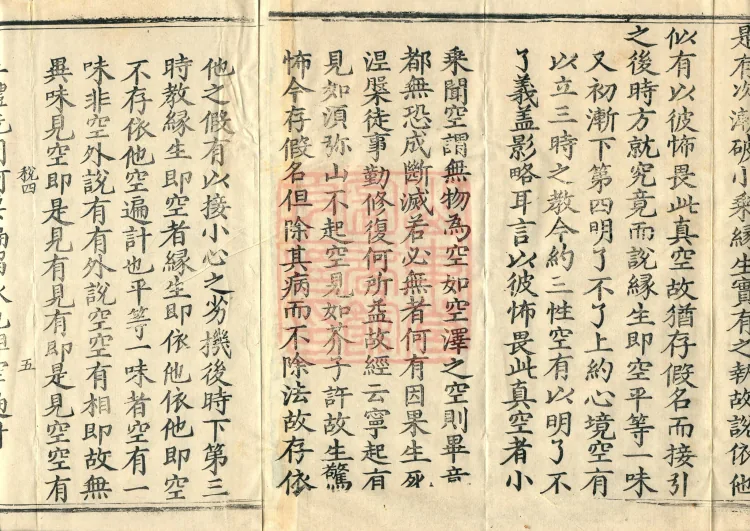 是有次漸破小乘緣生實有之執故說依他
似有以彼怖畏此真空故猶存假名而接引
之後時方就究竟而說緣生即空平等一味
又初漸下第四明了不了上約心境空有
以立三時之教今約三性空有以明了不
了義盖影略耳言以彼怖畏此真空者小
乘聞空謂無物為空如空澤之空則畢竟
都無恐成斷滅若必無者何有因果生死
涅槃徒事勤修復何所益故經云寧起有
見如須弥山不起空見如芥子許故生驚
怖今存假名但除其病而不除法故存依
他之假有以接小心之劣機後時下第三
時教緣生即空者緣生即依他依他即空
不存依他空遍計也平等一味者空有一
味非空外說有有外說空空有相即故無
異味見空即是見有見有即是見空空有
税四
五